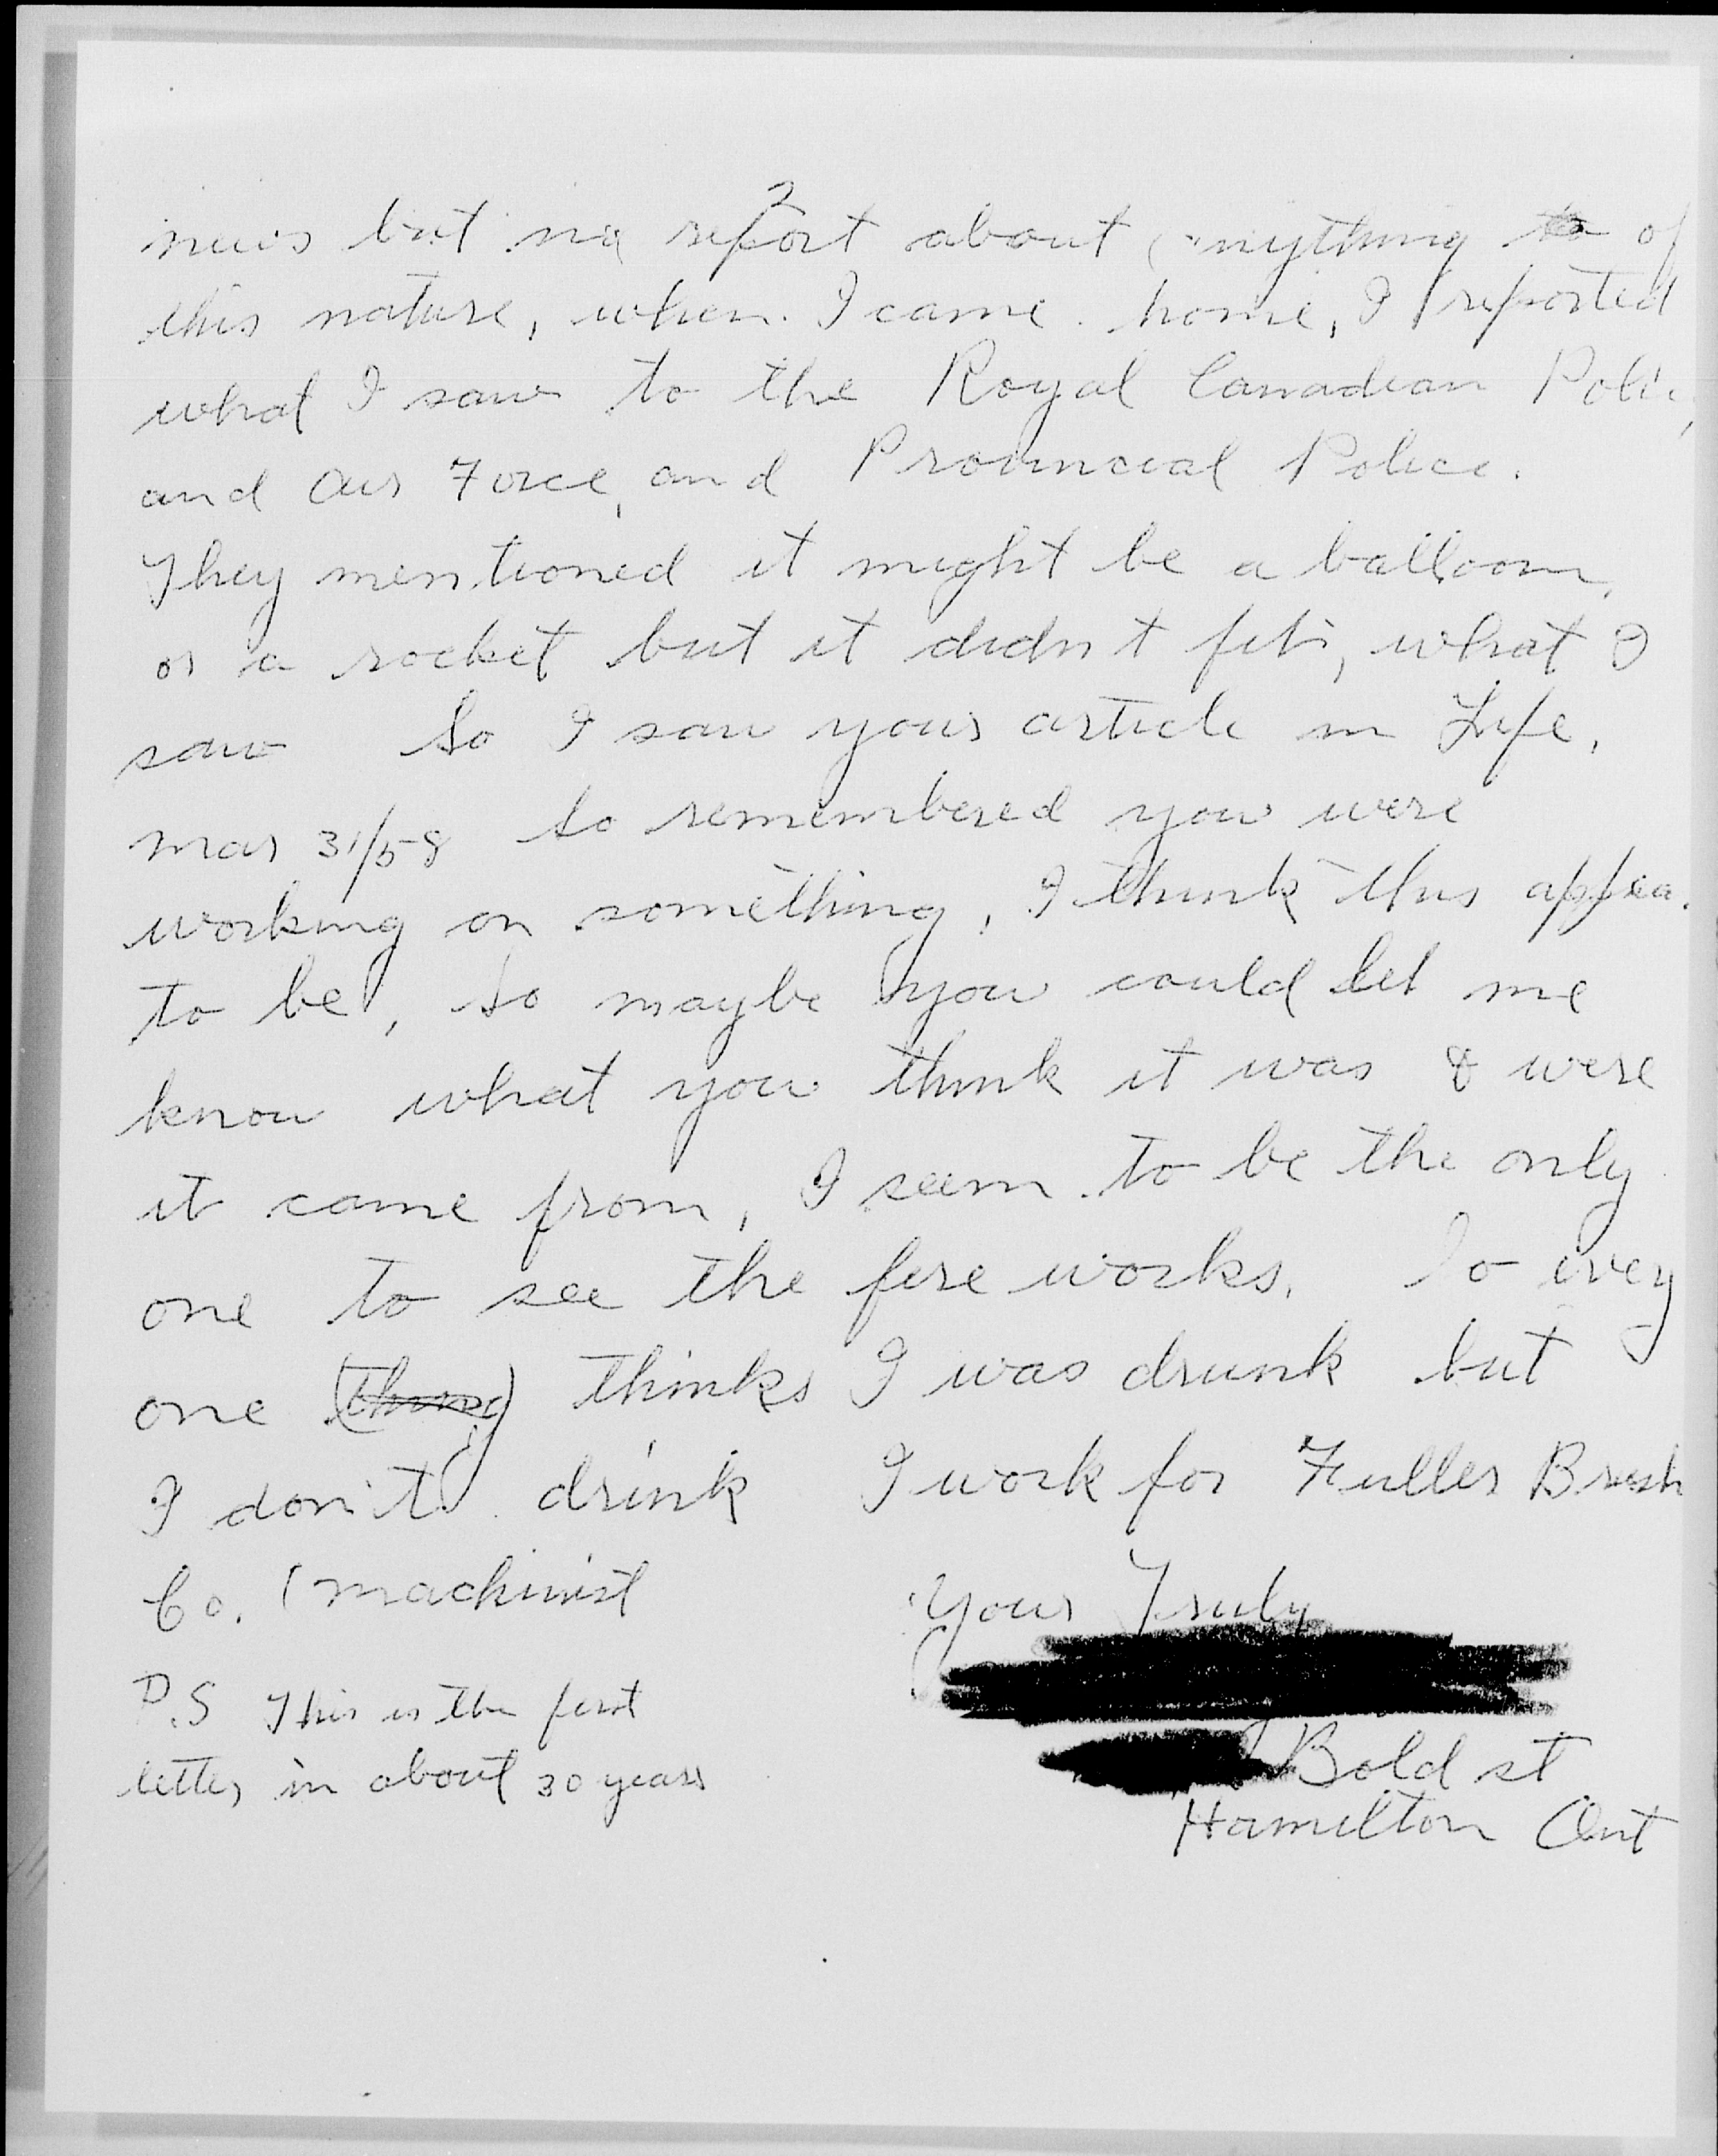 2
news but no report about anything to of
this nature, when I came home, I reported
what I saw to the Royal Canadian Polic
and Air Force, and Provincial Police.
They mentioned it might be a balloon,
or a rocket but it didn't fit, what I
saw So I saw your article in Life,
Mar 31/58 so remembered you were
working on something, I think this appea
to be, so maybe you could let me
know what you think it was & were
it came from, I seem to be the only
one to see the fire works. So every
one (thing) thinks I was drunk but
I don't drink I work for Fuller Brush
Co. (machinist
Your Truly
P.S This is the first
letter in about 30 years
Bold st
Hamilton Ont